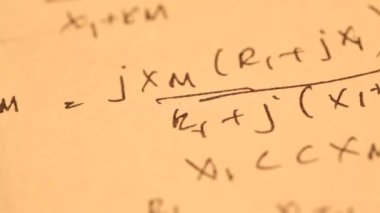 X₁ + XM
M = j XM (R₁ + j X₁)
R₁ + j (X₁ +
X₁ << XM